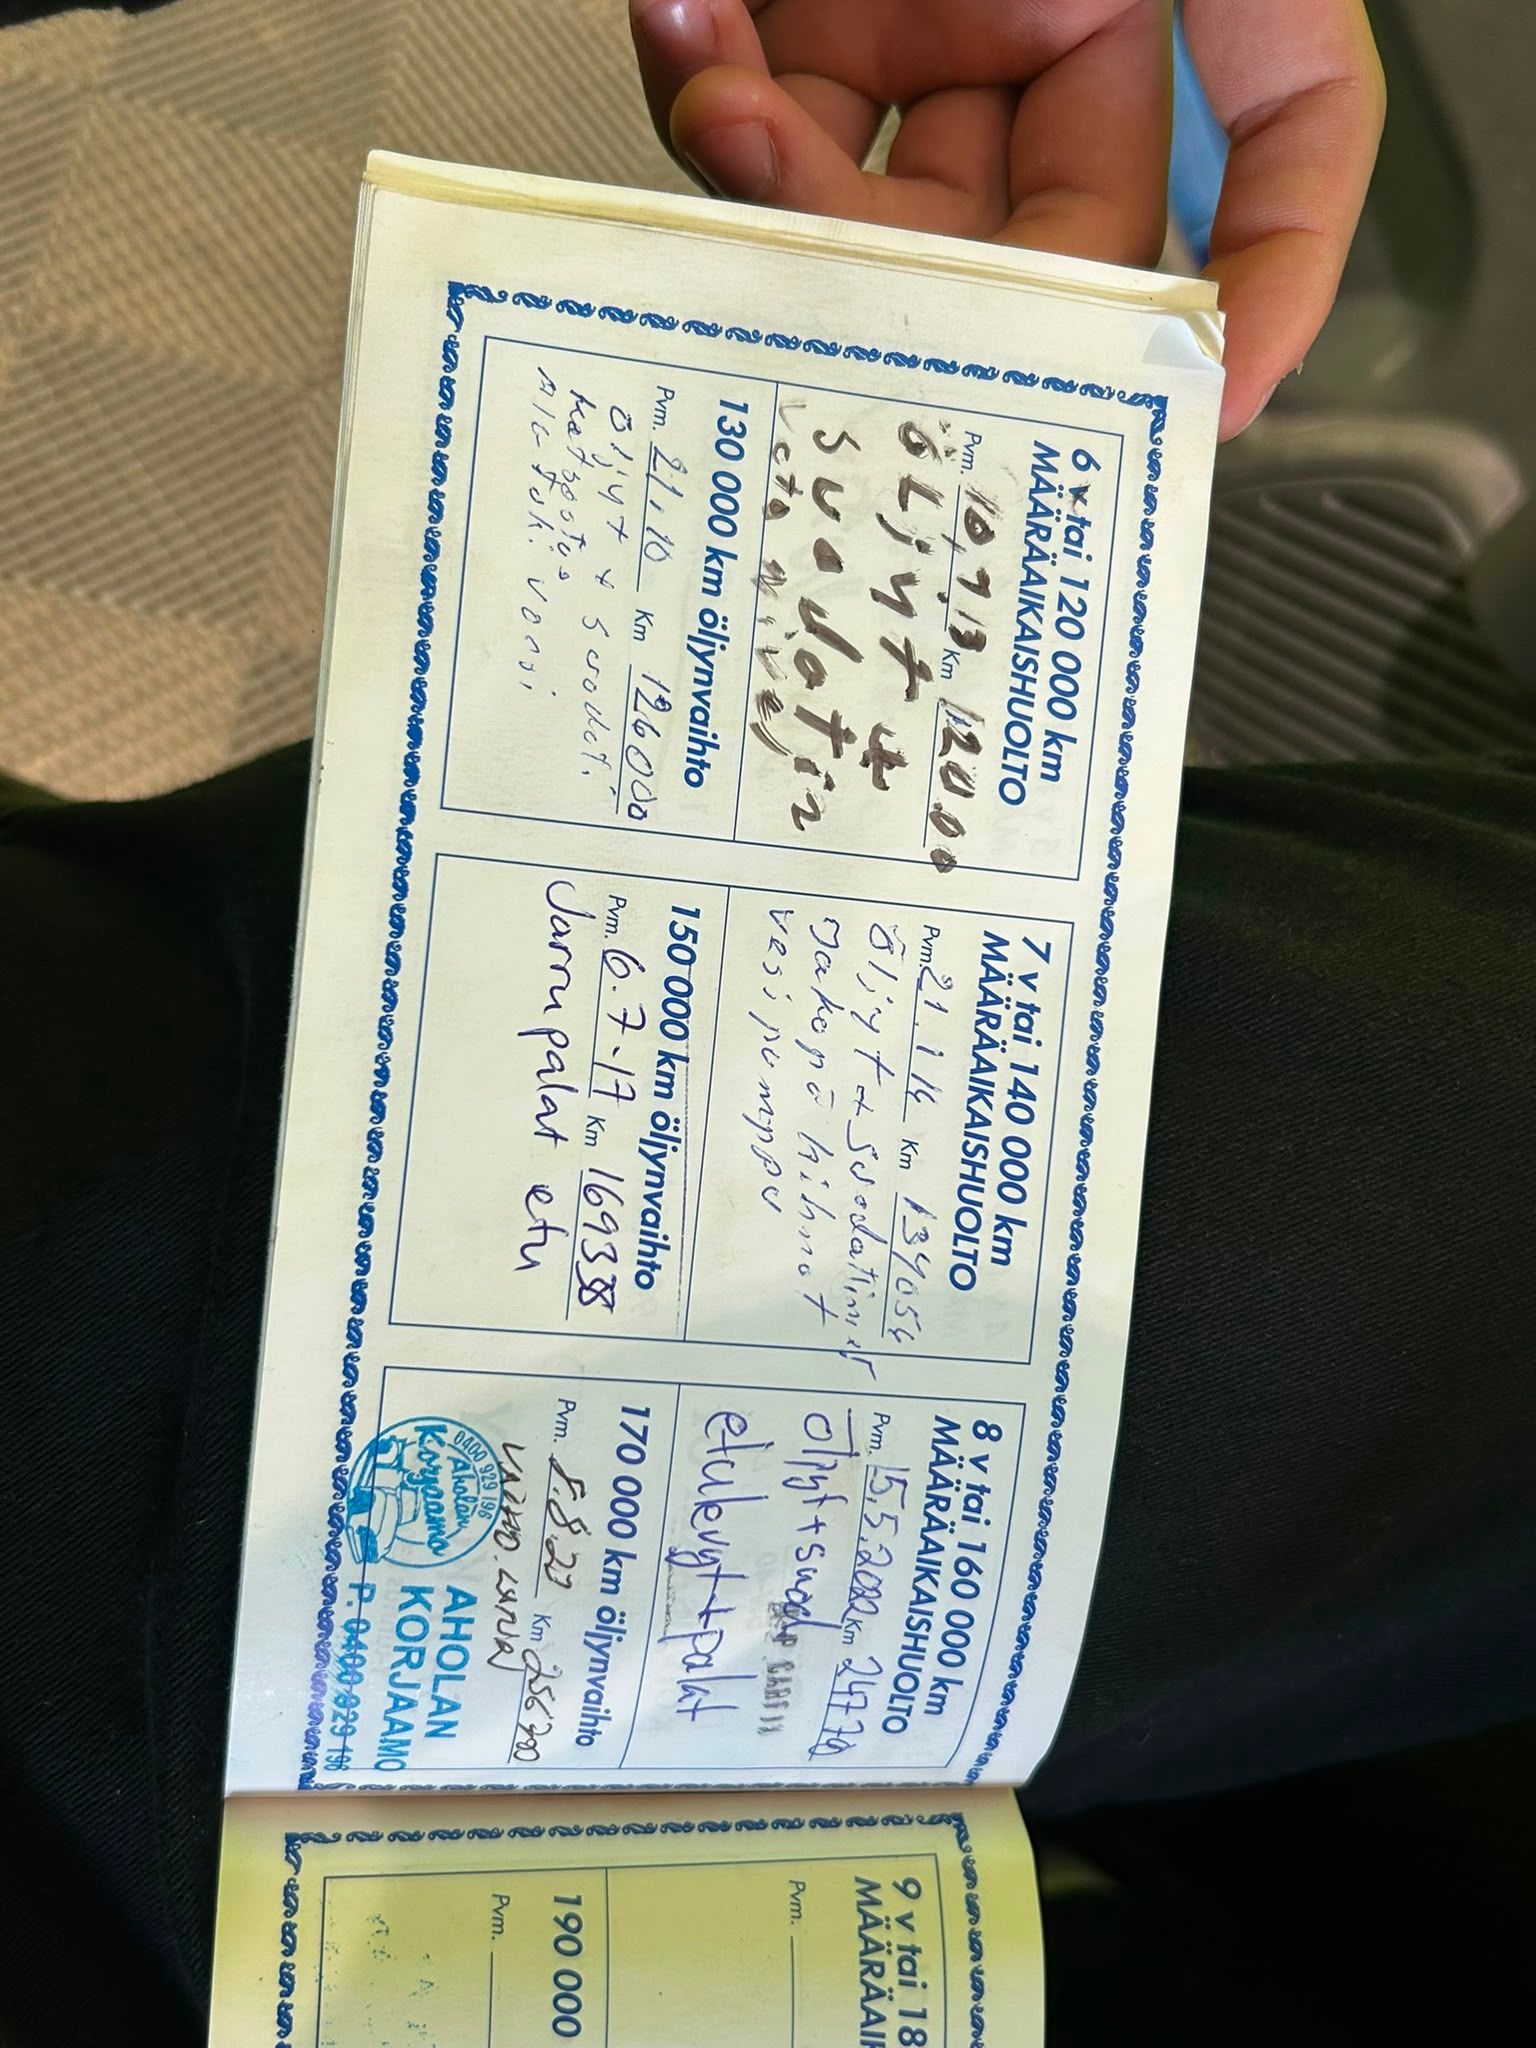 6 v tai 120 000 km
MÄÄRÄAIKAISHUOLTO
Pvm. 10,9,13 Km 12000
öLjyt +
suodatin
130 000 km öljynvaihto
Pvm. 21,10 Km 126000
öljyt + suodat.
katsastus
alatuki vasi
7 v tai 140 000 km
MÄÄRÄAIKAISHUOLTO
Pvm. 21.1.14 Km 134054
öljyt + suodattimet
Jakopä hihnat
vesipumppu
150 000 km öljynvaihto
Pvm. 6.7.17 Km 169338
Jarrupalat etu
8 v tai 160 000 km
MÄÄRÄAIKAISHUOLTO
Pvm. 15.5.2022 Km
Öljyt + suod
etulevyt + palat
170 000 km öljynvaihto
Pvm. Km
0400 929 196
Aholan
Korjaamo
AHOLAN
KORJAAMO
P. 0400 929 196
9 v tai 18
MÄÄRÄAI
Pvm.
190 000
Pvm.